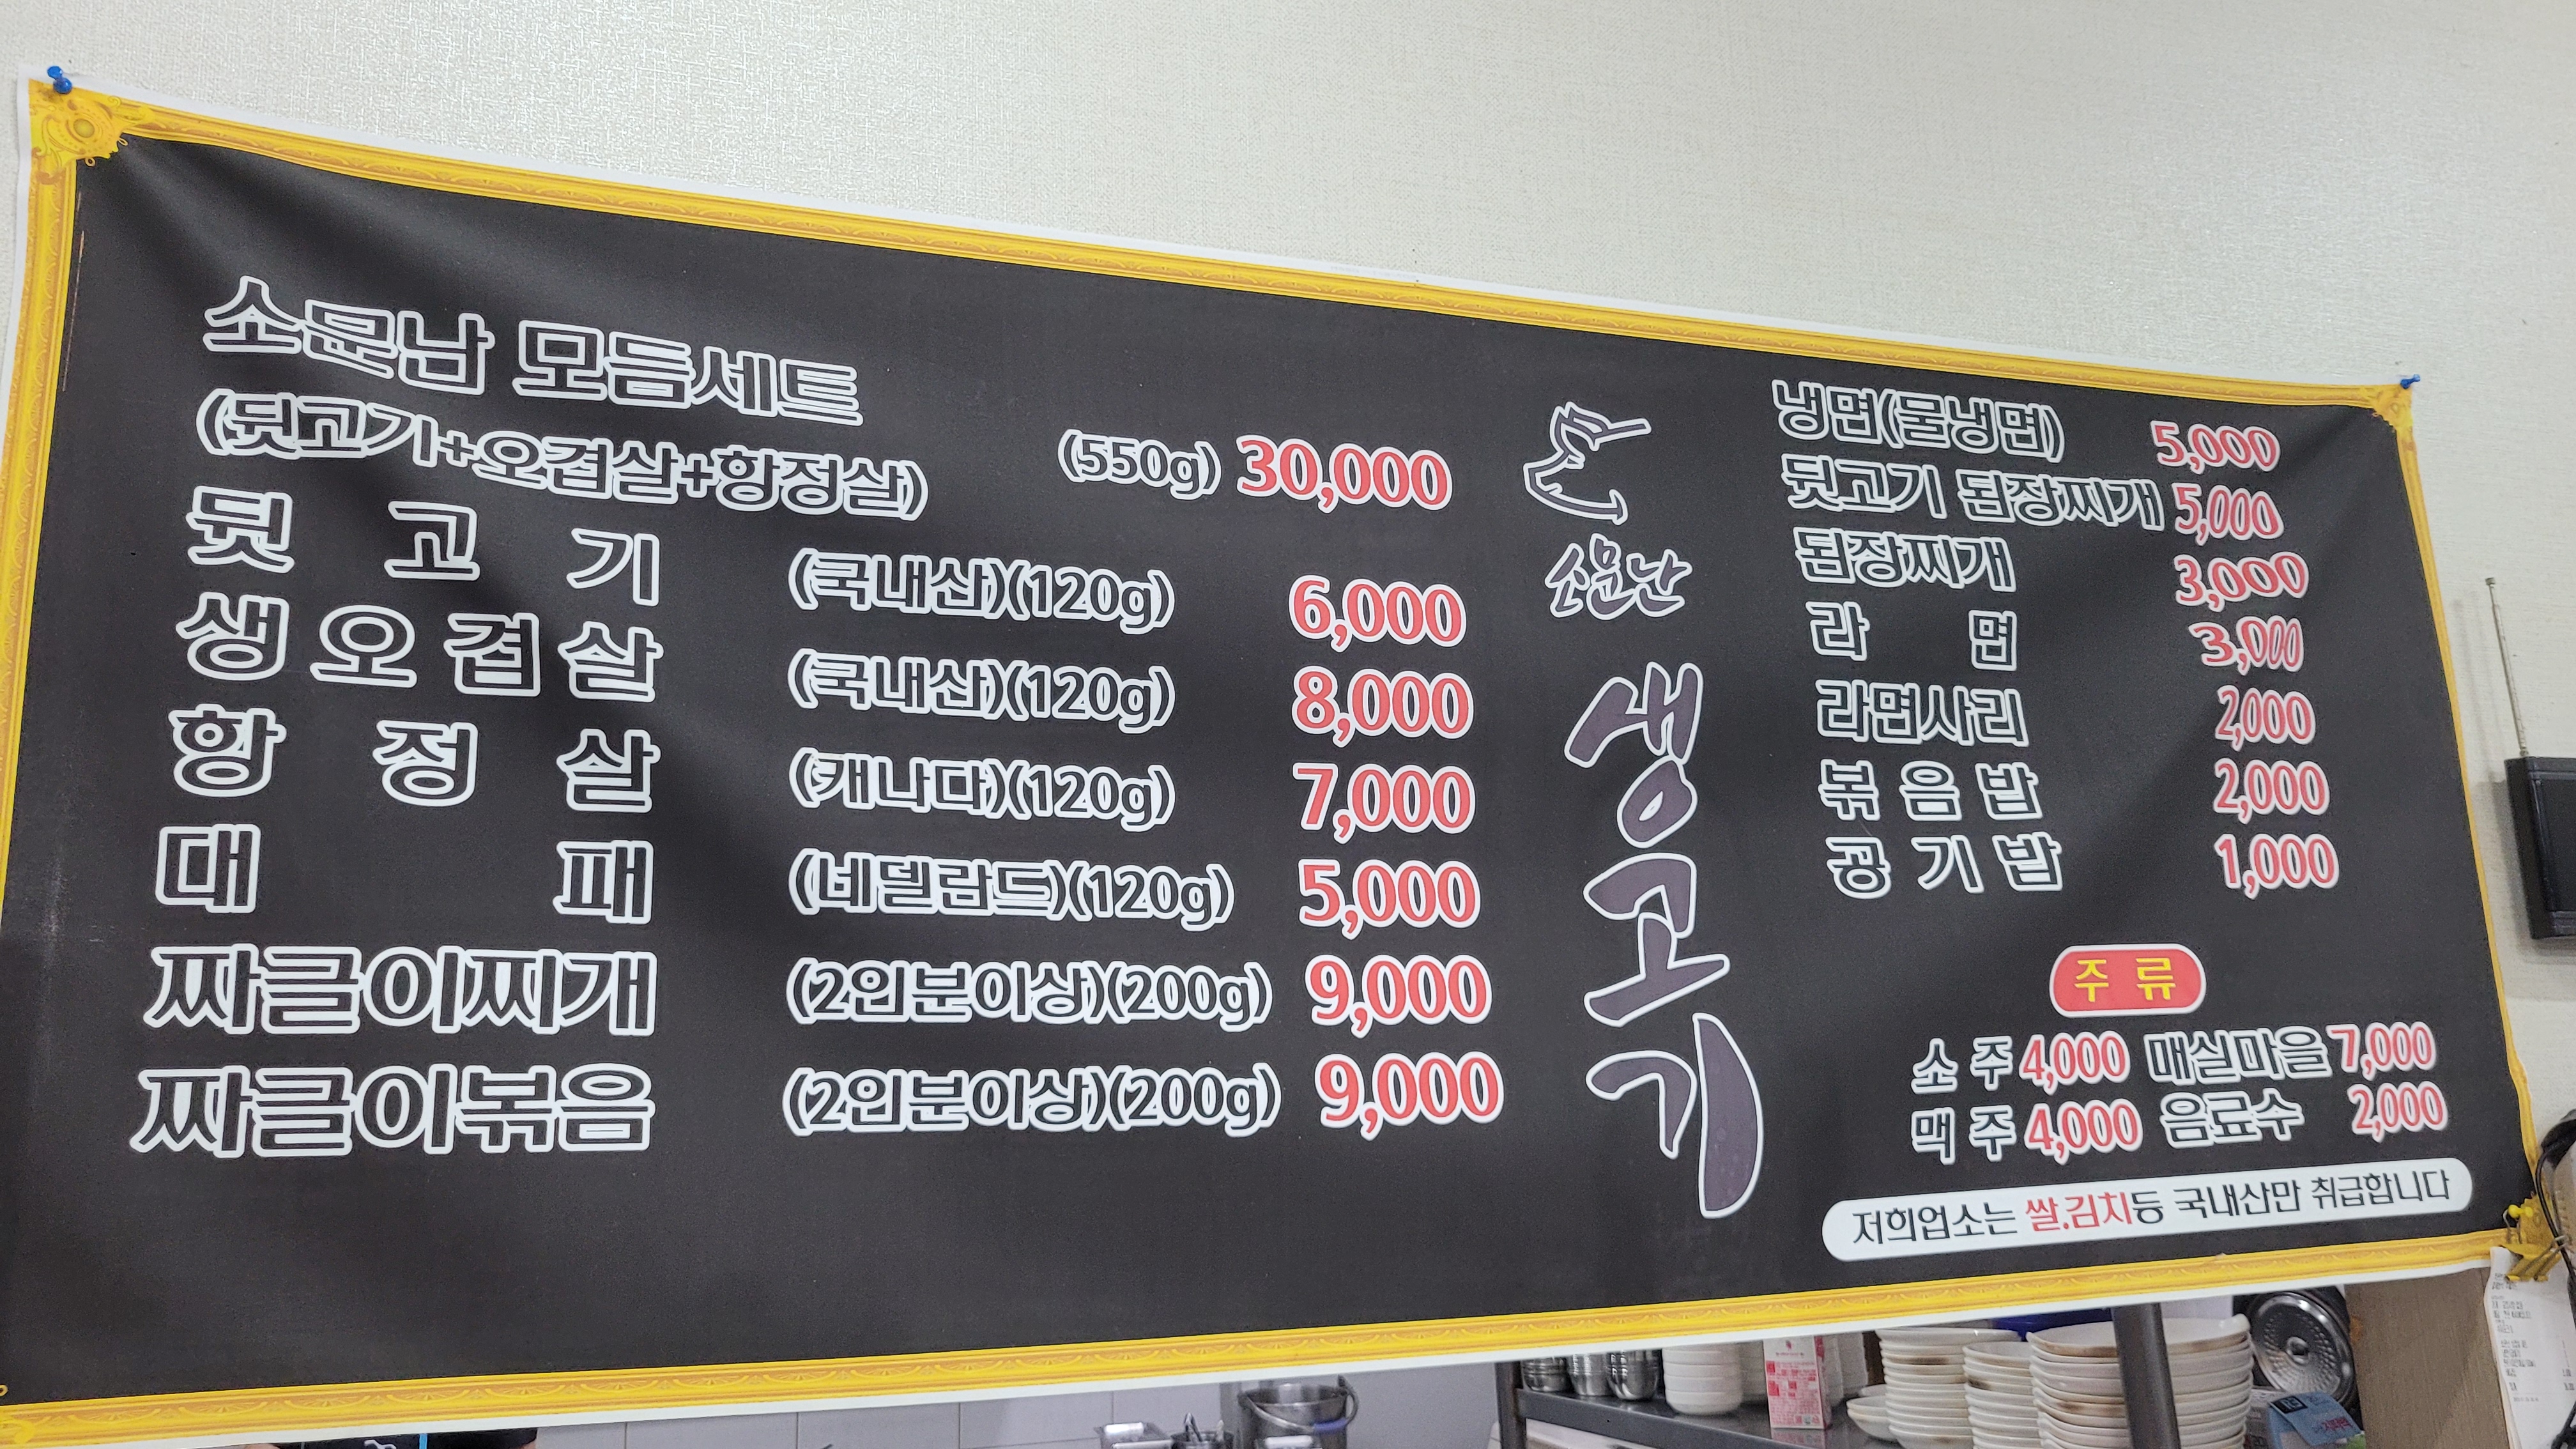 소문난 모듬세트
(뒷고기+오겹살+항정살) (550g) 30,000
뒷고기 (국내산)(120g) 6,000
생오겹살 (국내산)(120g) 8,000
항정살 (캐나다)(120g) 7,000
대패 (네델란드)(120g) 5,000
짜글이찌개 (2인분이상)(200g) 9,000
짜글이볶음 (2인분이상)(200g) 9,000
소문난
생고기
냉면(물냉면) 5,000
뒷고기 된장찌개 5,000
된장찌개 3,000
라면 3,000
라면사리 2,000
볶음밥 2,000
공기밥 1,000
주류
소주 4,000 매실마을 7,000
맥주 4,000 음료수 2,000
저희업소는 쌀.김치등 국내산만 취급합니다